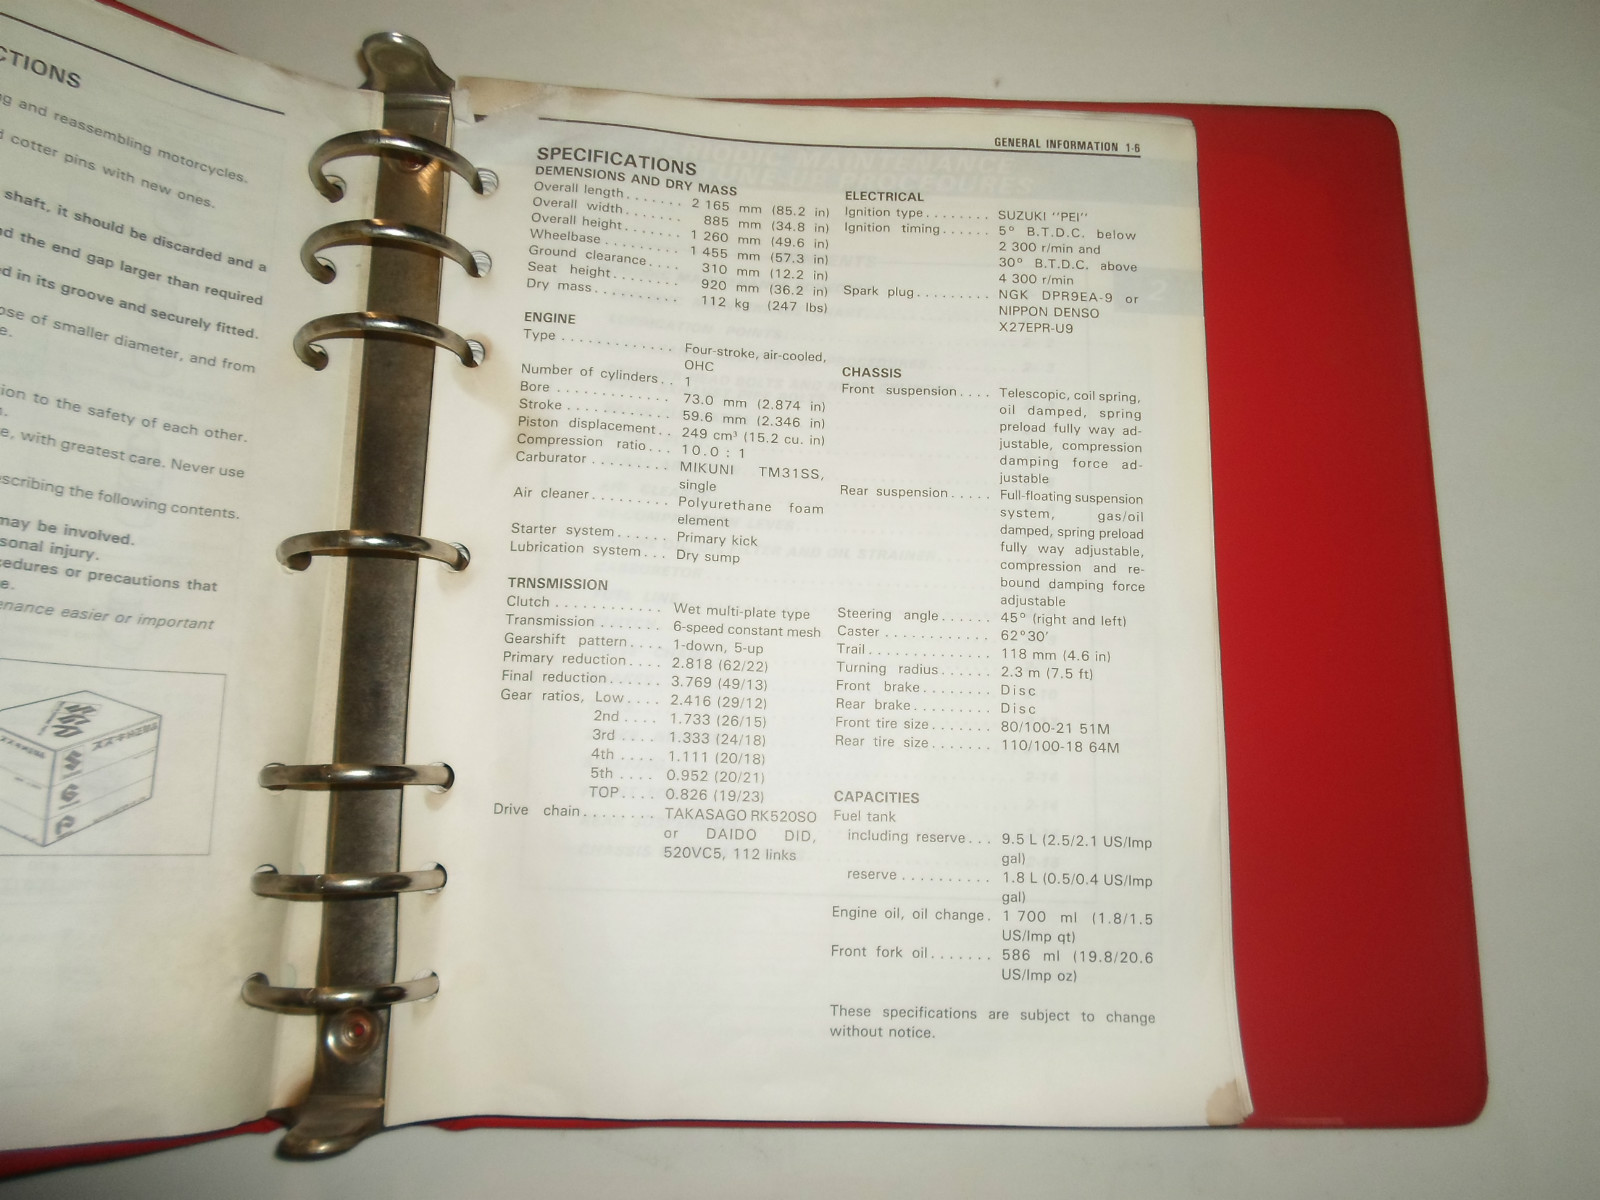 CTIONS
and reassembling motorcycles.
cotter pins with new ones.
shaft, it should be discarded and a
the end gap larger than required
in its groove and securely fitted.
of smaller diameter, and from
to the safety of each other.
with greatest care. Never use
the following contents.
may be involved.
injury.
or precautions that
easier or important
GENERAL INFORMATION 1-6
SPECIFICATIONS
DEMENSIONS AND DRY MASS
Overall length....... 2 165 mm (85.2 in)
Overall width....... 885 mm (34.8 in)
Overall height....... 1 260 mm (49.6 in)
Wheelbase......... 1 455 mm (57.3 in)
Ground clearance.... 310 mm (12.2 in)
Seat height....... 920 mm (36.2 in)
Dry mass.......... 112 kg (247 lbs)
ENGINE
Type ............. Four-stroke, air-cooled,
OHC
Number of cylinders.. 1
Bore ............ 73.0 mm (2.874 in)
Stroke ........... 59.6 mm (2.346 in)
Piston displacement.. 249 cm³ (15.2 cu. in)
Compression ratio... 10.0 : 1
Carburator ......... MIKUNI TM31SS,
single
Air cleaner......... Polyurethane foam
element
Starter system...... Primary kick
Lubrication system... Dry sump
TRNSMISSION
Clutch ............ Wet multi-plate type
Transmission ....... 6-speed constant mesh
Gearshift pattern.... 1-down, 5-up
Primary reduction.... 2.818 (62/22)
Final reduction...... 3.769 (49/13)
Gear ratios, Low.... 2.416 (29/12)
2nd .... 1.733 (26/15)
3rd .... 1.333 (24/18)
4th .... 1.111 (20/18)
5th .... 0.952 (20/21)
TOP.... 0.826 (19/23)
Drive chain........ TAKASAGO RK520SO
or DAIDO DID,
520VC5, 112 links
ELECTRICAL
Ignition type........ SUZUKI "PEI"
Ignition timing...... 5° B.T.D.C. below
2 300 r/min and
30° B.T.D.C. above
4 300 r/min
Spark plug......... NGK DPR9EA-9 or
NIPPON DENSO
X27EPR-U9
CHASSIS
Front suspension.... Telescopic, coil spring,
oil damped, spring
preload fully way ad-
justable, compression
damping force ad-
justable
Rear suspension..... Full-floating suspension
system, gas/oil
damped, spring preload
fully way adjustable,
compression and re-
bound damping force
adjustable
Steering angle...... 45° (right and left)
Caster ............ 62°30'
Trail.............. 118 mm (4.6 in)
Turning radius...... 2.3 m (7.5 ft)
Front brake........ Disc
Rear brake......... Disc
Front tire size....... 80/100-21 51M
Rear tire size....... 110/100-18 64M
CAPACITIES
Fuel tank
including reserve... 9.5 L (2.5/2.1 US/Imp
gal)
reserve .......... 1.8 L (0.5/0.4 US/Imp
gal)
Engine oil, oil change. 1 700 ml (1.8/1.5
US/Imp qt)
Front fork oil....... 586 ml (19.8/20.6
US/Imp oz)
These specifications are subject to change
without notice.